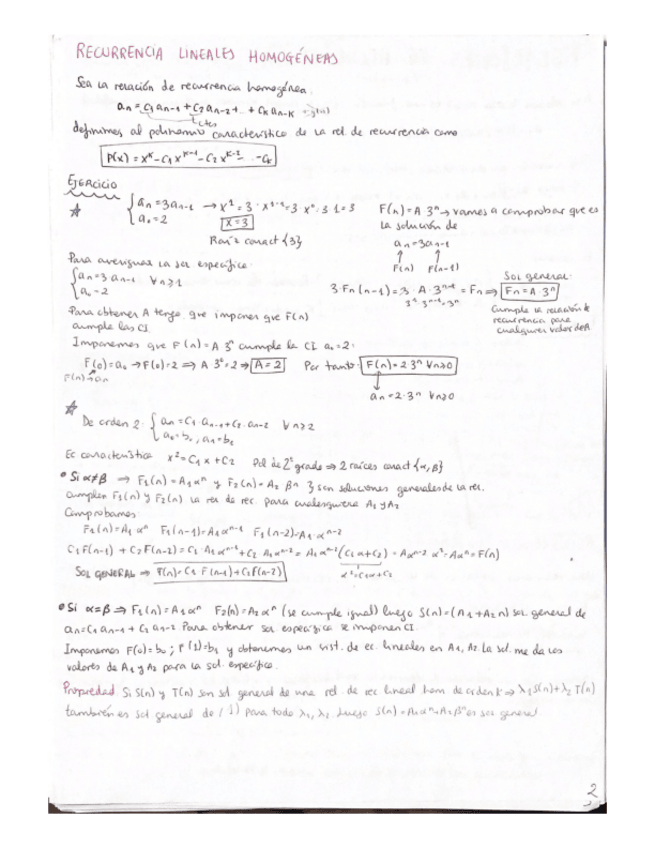 RECURRENCIA LINEALES HOMOGÉNEAS
Sea la relación de recurrencia homogénea:
an = C1 an-1 + C2 an-2 + ... + Ck an-k
ctes
definimos al polinomio característico de la rel. de recurrencia como
P(x) = x^k - C1 x^k-1 - C2 x^k-2 - ... - Ck
EJERCICIO
{ an = 3an-1 → x^1 = 3 · x^1-1 = 3 · x^0 = 3·1 = 3
a0 = 2
x = 3
Raíz caract {3}
F(n) = A 3^n → vamos a comprobar que es
la solución de
an = 3an-1
F(n) F(n-1)
Para averiguar la sol específica:
{ an = 3·an-1 ∀n≥1
a0 = 2
3·Fn(n-1) = 3·A·3^n-1 = Fn ⇒ Fn = A·3^n
3·3^n-1 = 3^n
Sol general:
Cumple la relación de
recurrencia para
cualquier valor de A
Para obtener A tengo que imponer que F(n)
cumple las CI.
Imponemos que F(n) = A 3^n cumple la CI a0 = 2:
F(0) = a0 → F(0) = 2 ⇒ A 3^0 = 2 → A = 2 Por tanto: F(n) = 2·3^n ∀n≥0
F(n) → an
an = 2·3^n ∀n≥0
De orden 2: { an = C1·an-1 + C2·an-2 ∀n≥2
a0 = b0, a1 = b1
Ec característica x^2 = C1 x + C2 Pol de 2º grado ⇒ 2 raíces caract {α, β}
• Si α≠β ⇒ F1(n) = A1 α^n y F2(n) = A2 β^n } son soluciones generales de la rel.
cumplen F1(n) y F2(n) la rel de rec. para cualesquiera A1 y A2
Comprobamos:
F1(n) = A1 α^n F1(n-1) = A1 α^n-1 F1(n-2) = A1 α^n-2
C1 F(n-1) + C2 F(n-2) = C1·A1 α^n-1 + C2·A1 α^n-2 = A1 α^n-2 (C1 α + C2) = A α^n-2 α^2 = A α^n = F(n)
α^2 = C1 α + C2
SOL GENERAL ⇒ F(n) = C1 F(n-1) + C2 F(n-2)
• Si α=β ⇒ F1(n) = A1 α^n F2(n) = A2 α^n (se cumple igual) luego S(n) = (A1 + A2 n) sol general de
an = C1 an-1 + C2 an-2 Para obtener sol específica se imponen CI.
Imponemos F(0) = b0; F(1) = b1 y obtenemos un sist. de ec. lineales en A1, A2 La sol. me da los
valores de A1 y A2 para la sol. específica.
Propiedad Si S(n) y T(n) son sol general de una rel. de rec lineal hom de orden k ⇒ λ1 S(n) + λ2 T(n)
también es sol general de (1) para todo λ1, λ2. Luego S(n) = A1 α^n + A2 β^n es sol general.
2